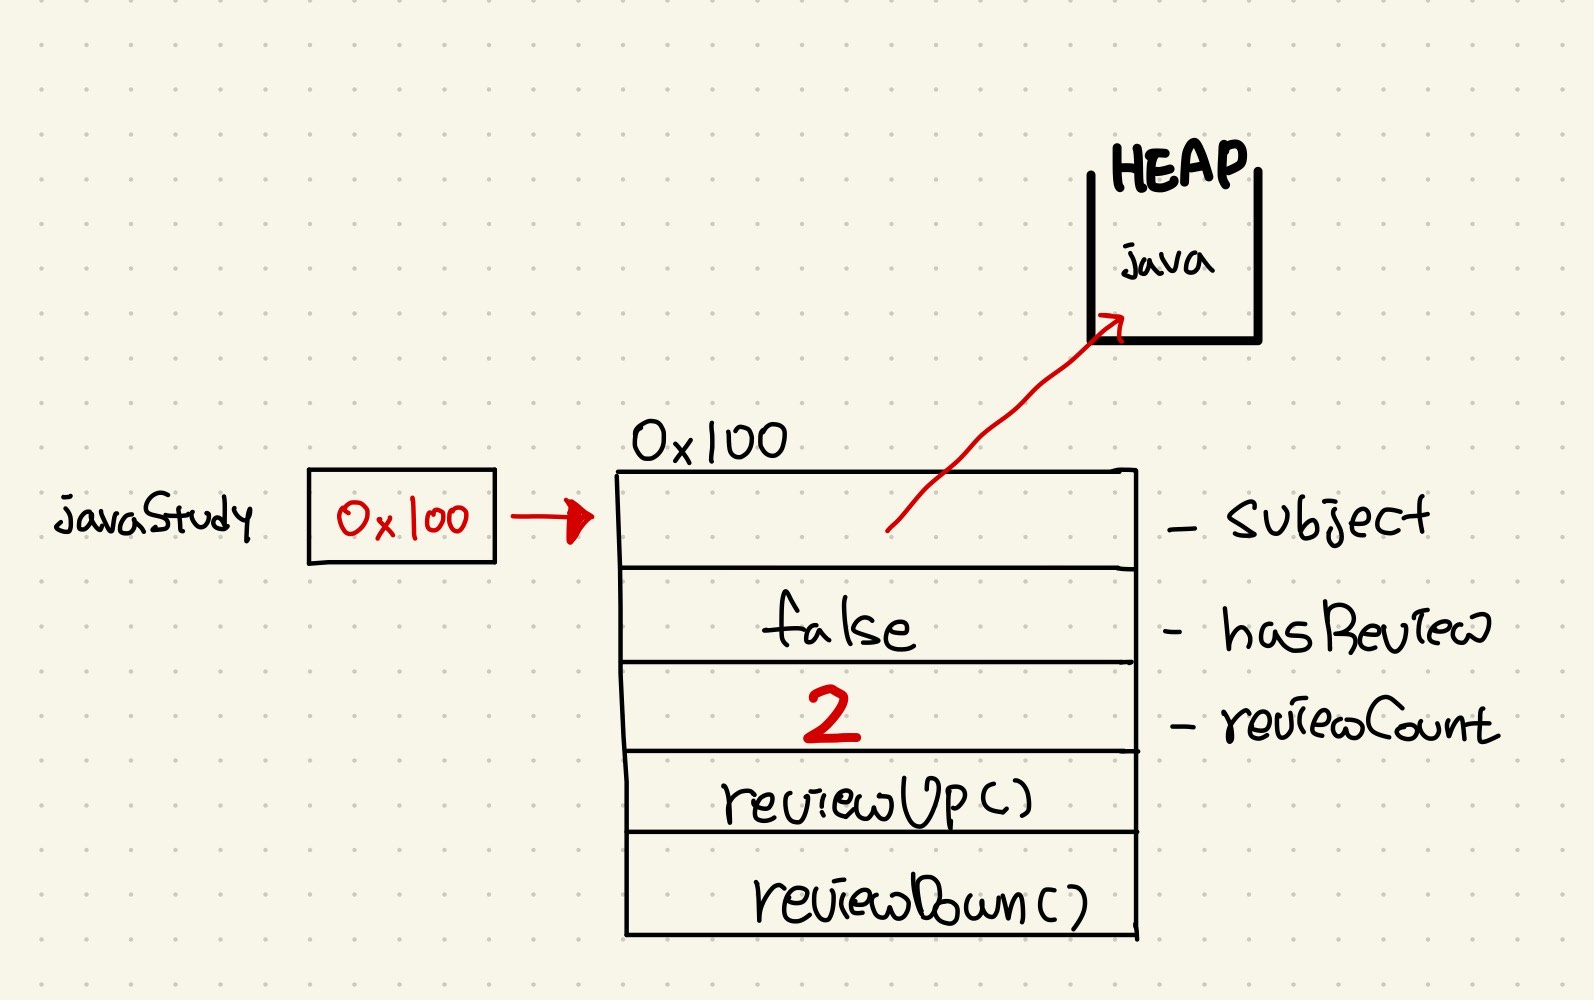 HEAP
java
0x100
javaStudy 0x100 - subject
false - hasReview
2 - reviewCount
reviewUp()
reviewDown()